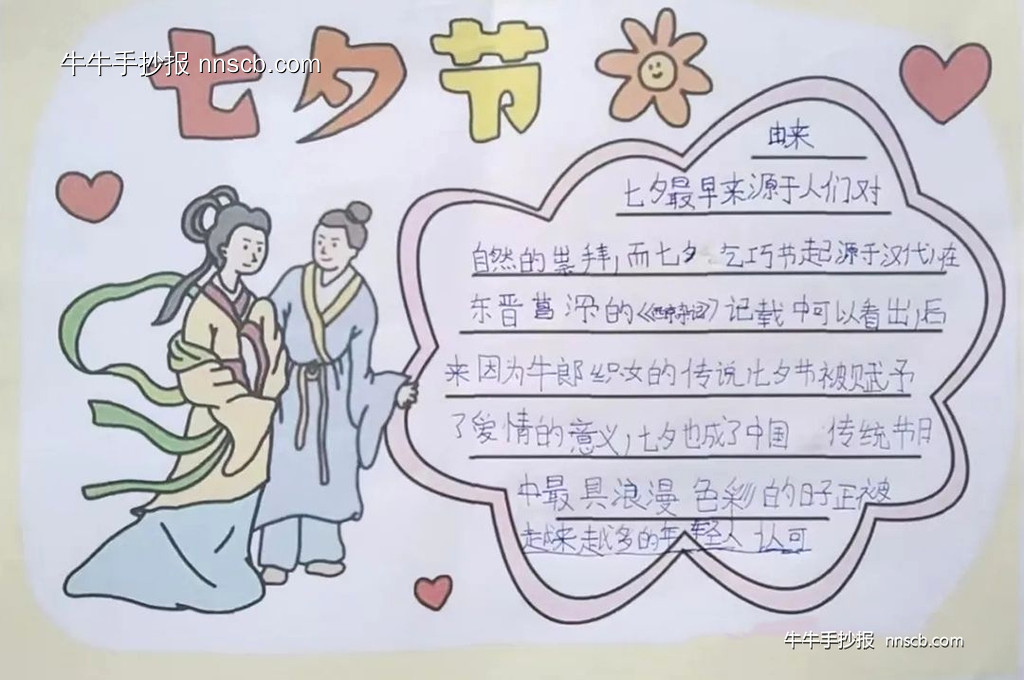 七夕节
牛牛手抄报 nnscb.com
由来
七夕最早来源于人们对
自然的崇拜,而七夕 乞巧节起源于汉代,在
东晋葛 的《西京杂记》记载中可以看出,后
来因为牛郎织女的传说七夕节被赋予
了爱情的意义,七夕也成了中国 传统节日
中最具浪漫 色彩的日子正被
越来越多的年轻人 认可
牛牛手抄报 nnscb.com